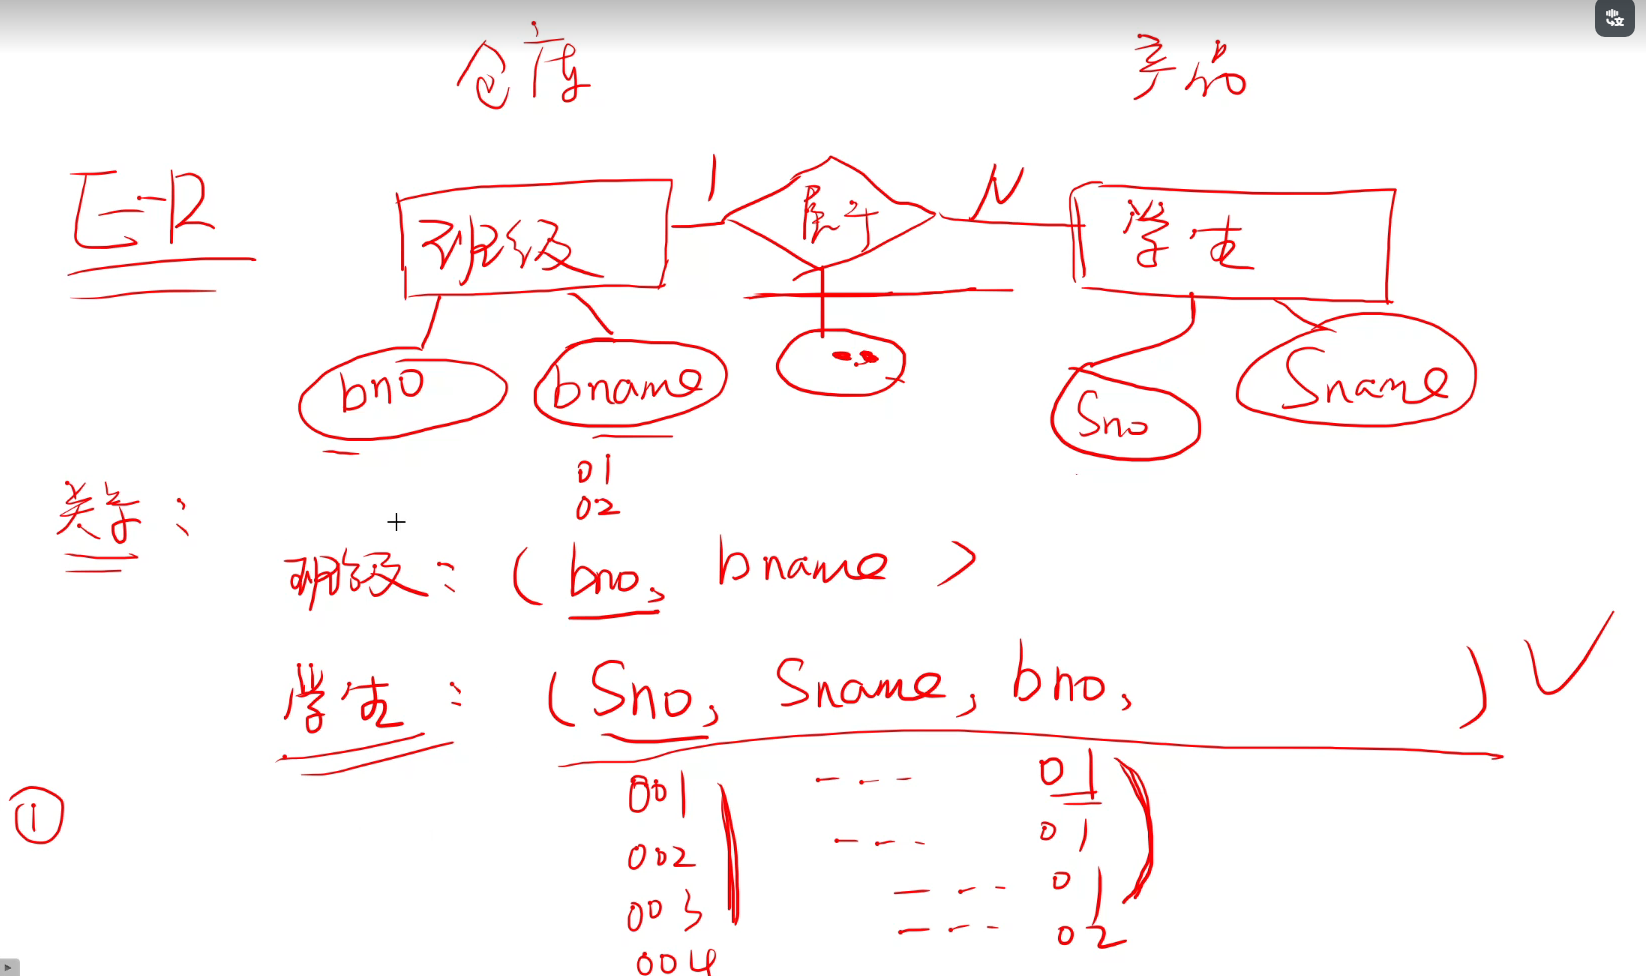 仓库 产品
E-R 班级 1 属于 N 学生
bno bname Sno Sname
01
02
关系：
班级： (bno, bname)
学生： (Sno, Sname, bno, )
001 --- 01
① 002 --- 01
003 --- 01
004 --- 02